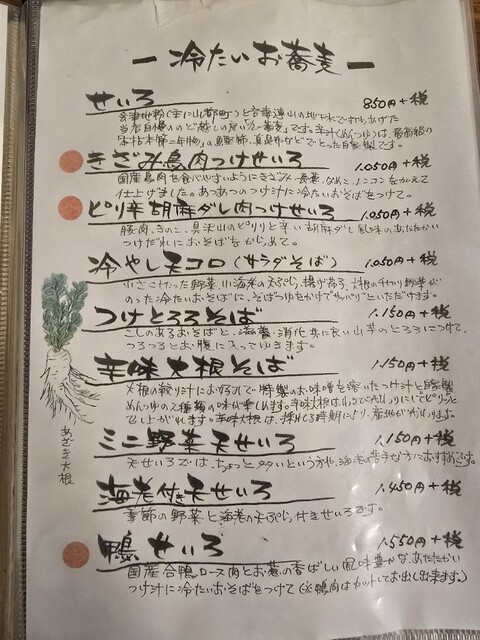 ー 冷たいお蕎麦 ー
せいろ 850円+税
当店自慢ののど越しの良い「二八蕎麦」です。辛汁(めんつゆ)は、最高級の
「本枯本節二年物」の鰹節、真昆布などでとった自家製です。
きざみ鳥肉つけせいろ 1.050円+税
国産鳥肉を食べやすいようにきざみ、長葱、なめこ、ニンニクを加えて
仕上げました。あつあつのつけ汁に冷たいおそばをつけて。
ピリ辛胡麻ダレ肉つけせいろ 1.050円+税
豚肉、きのこ、具沢山のピリリと辛い胡麻ダレ風味のあたたかい
つけだれにおそばをからめて。
冷やし天コロ(サラダそば) 1.050円+税
小さく切った野菜、小海老の天ぷら、揚げ茄子、大根の千切り野菜が
のった冷たいおそばに、そばつゆをかけてサッパリといただけます。
つけとろろそば 1.150円+税
こしのあるおそばと、滋養・消化共に良い山芋のとろろにつけて、
つるつるとお腹に入ってゆきます。
辛味大根そば 1.150円+税
大根の絞り汁にお好みで特製のお味噌を溶いたつけ汁と自家製
めんつゆの2種類の味が楽しめます。
あざき大根
ミニ野菜天せいろ 1.150円+税
天せいろでは、ちょっと多いという方や、海老の苦手な方におすすめです。
海老付き天せいろ 1.450円+税
季節の野菜と海老の天ぷら付きせいろです。
鴨せいろ 1.550円+税
国産合鴨ロース肉とお葱の香ばしい風味豊かな、あたたかい
つけ汁に冷たいおそばをつけて(※鴨肉はカットしてお出し出来ます。)